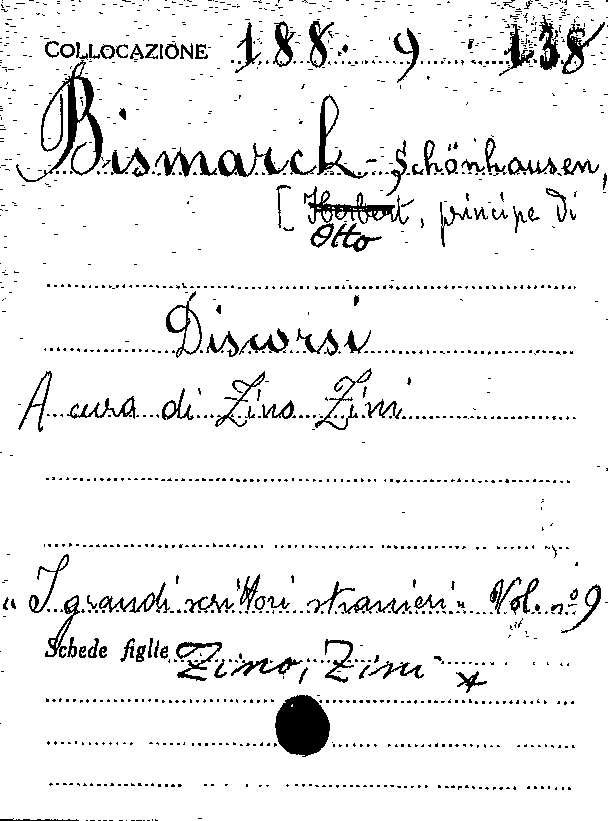 COLLOCAZIONE 188. 9 138
Bismarck-Schönhausen,
[Herbert, principe di
Otto
Discorsi
A cura di Zino Zini
"I grandi scrittori stranieri" Vol. nº 9
Schede figlie Zino, Zini *